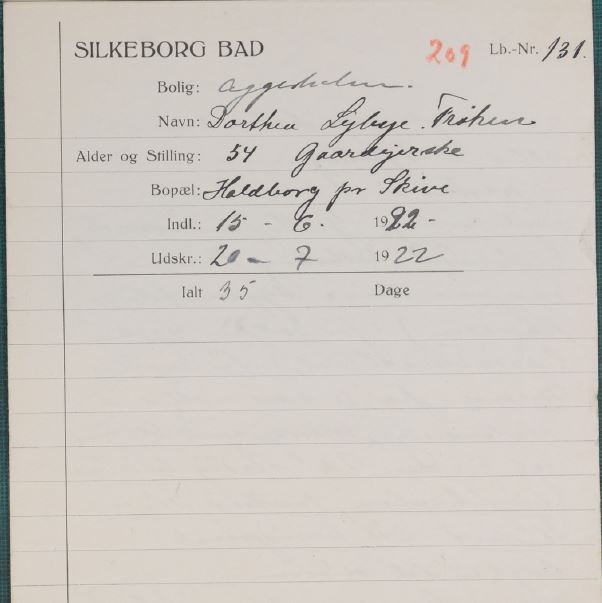 SILKEBORG BAD 209 Lb.-Nr. 131.
Bolig: Aggersholm.
Navn: Dorthea Lybye. Frøken
Alder og Stilling: 54 Gaardejerske
Bopæl: Holdborg pr Skive
Indl.: 15 - 6. 1922 -
Udskr.: 20 - 7 1922
Ialt 35 Dage